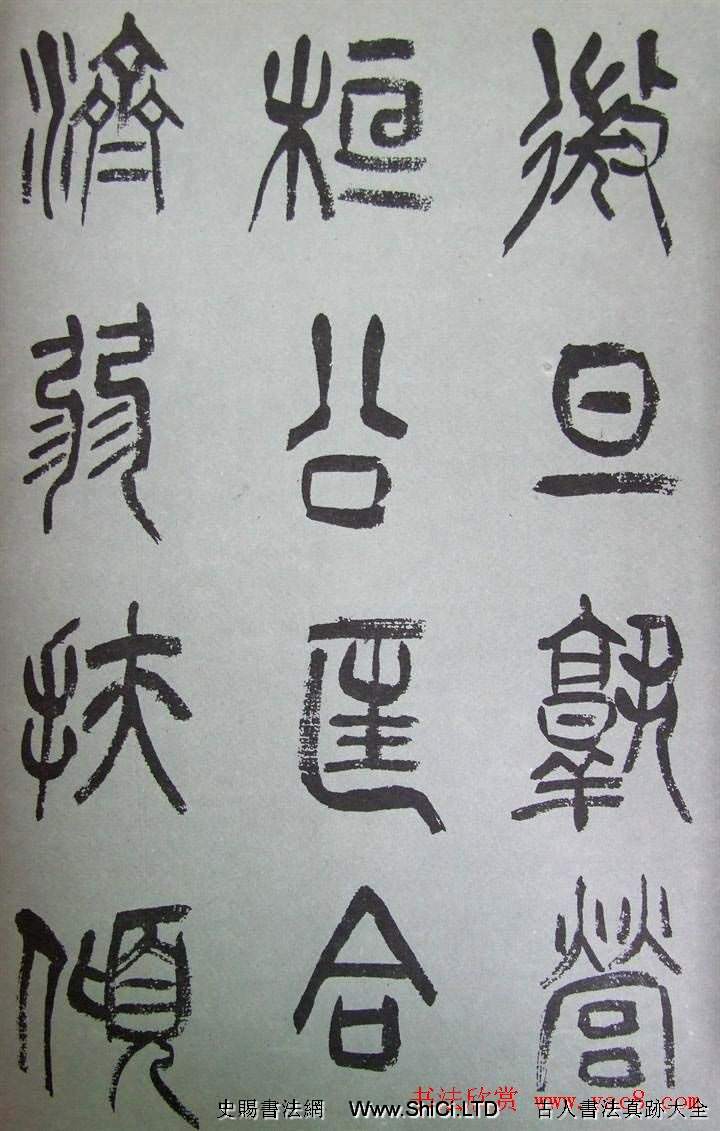 微旦孰營
桓公匡合
濟弱扶傾
书法欣赏 www.yac8.com
史賜書法網 Www.ShiCi.LTD 古人書法真跡大全